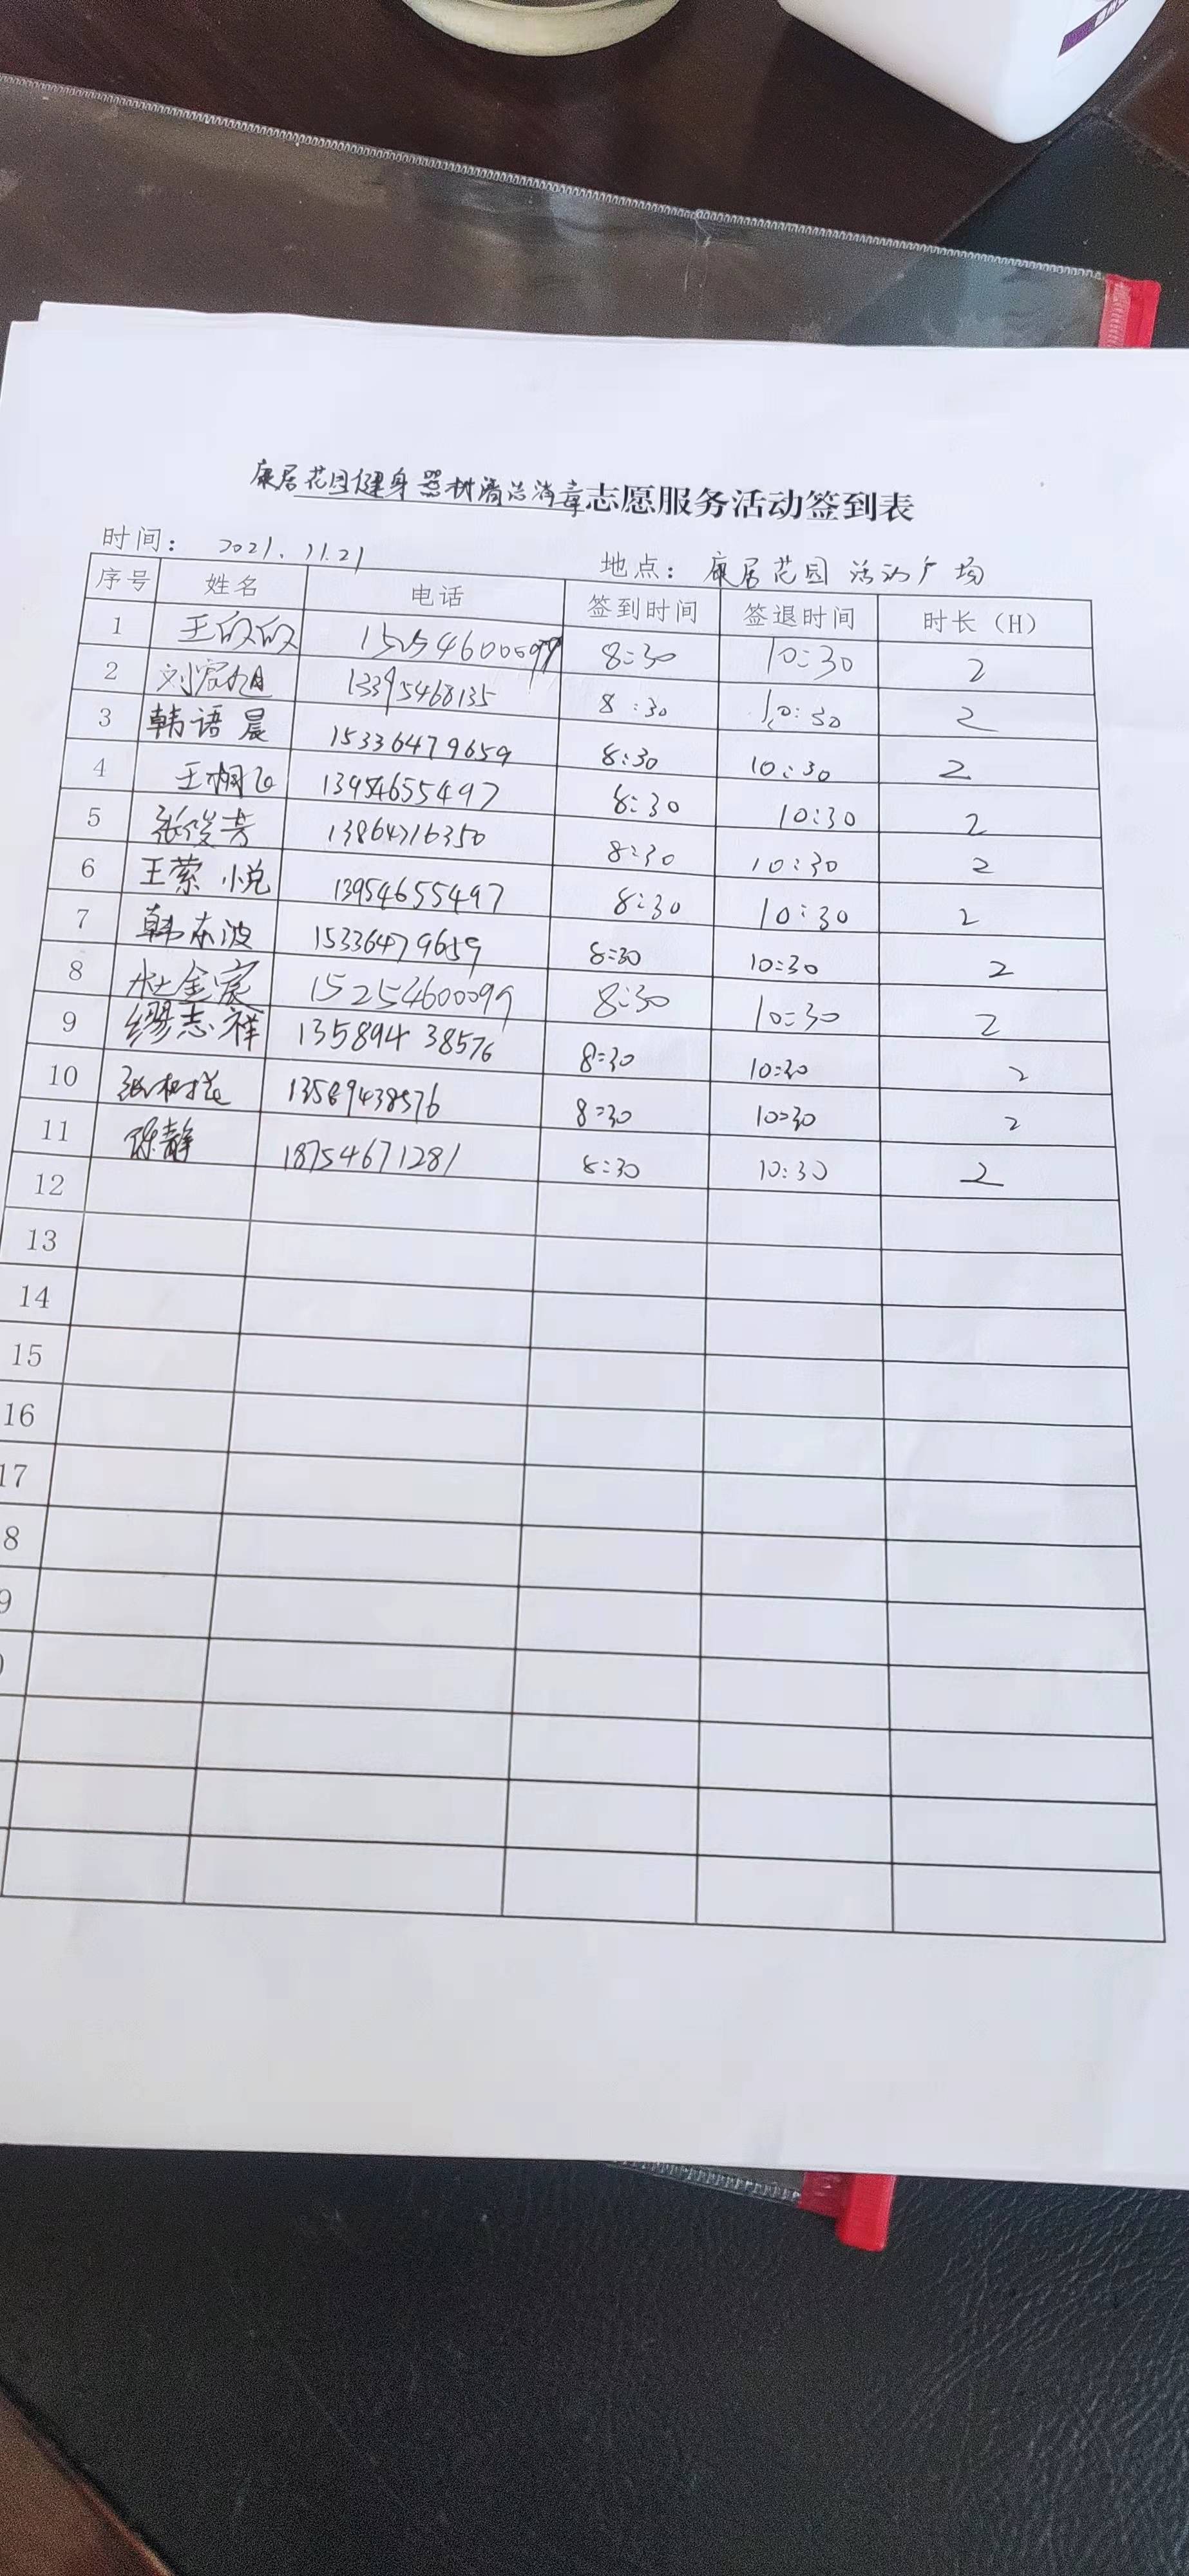 康居花园健身器材清洁消毒志愿服务活动签到表
时间： 2021.11.21 地点： 康居花园 活动广场
序号 姓名 电话 签到时间 签退时间 时长（H）
1 王欣欣 15254600099 8:30 10:30 2
2 刘宸旭 13395468135 8:30 10:30 2
3 韩语晨 15336479659 8:30 10:30 2
4 王 13954655497 8:30 10:30 2
5 张俊芳 13864716350 8:30 10:30 2
6 王萦小悦 13954655497 8:30 10:30 2
7 韩东波 15336479659 8:30 10:30 2
8 杜金宸 15254600099 8:30 10:30 2
9 缪志祥 13589438576 8:30 10:30 2
10 张树 13589438576 8:30 10:30 2
11 陈静 18754671281 8:30 10:30 2
12
13
14
15
16
17
8
9